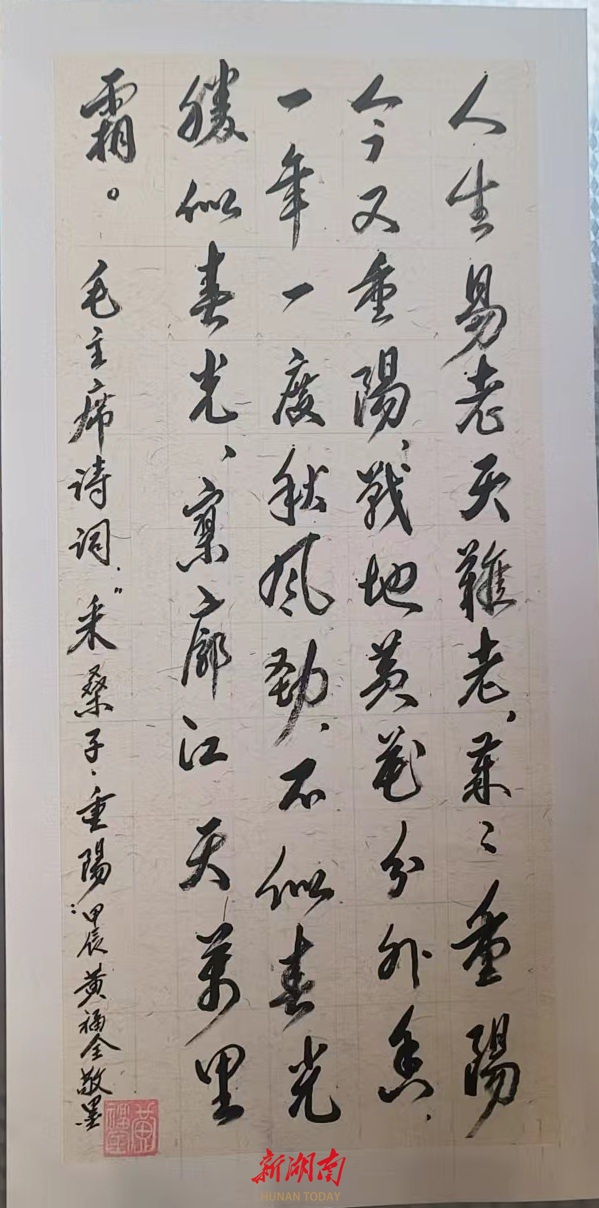 人生易老天难老，岁〻重陽
今又重陽，战地黄花分外香，
一年一度秋风劲，不似春光
勝似春光，寥廓江天萬里
霜。
毛主席诗词，"采桑子·重陽"：甲辰黄福全敬墨
黄福全
新湖南
HUNAN TODAY